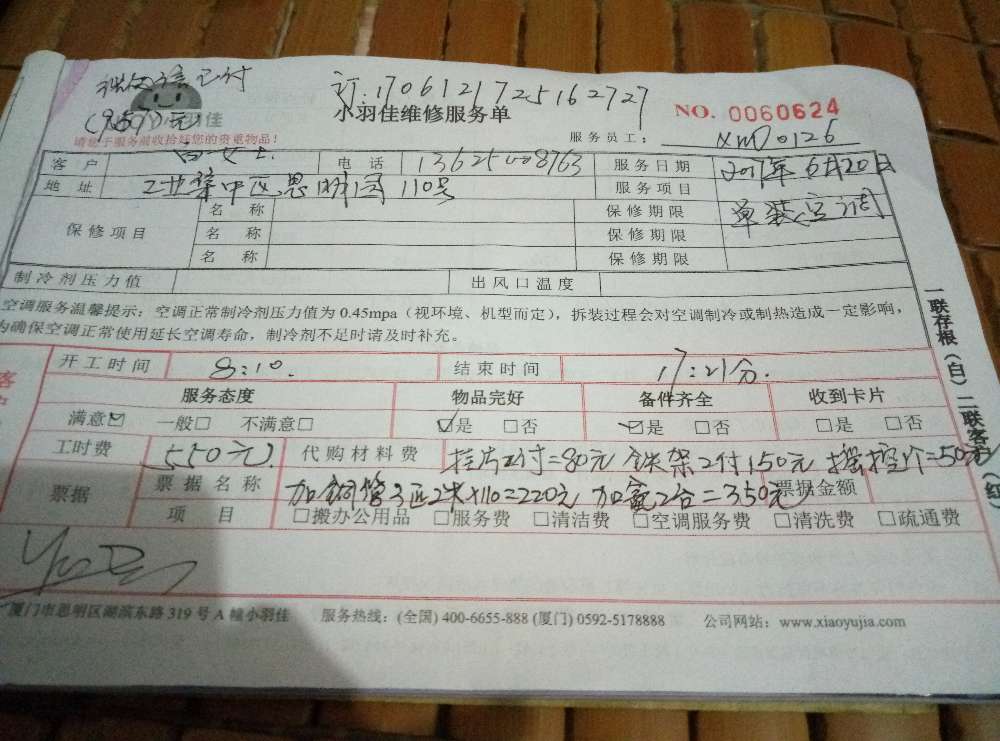 微信已付
订:1706121725162727
(850)元
小羽佳维修服务单
NO. 0060624
请您于服务前收拾好您的贵重物品!
服务员工: XMD0126
客 户 电 话 服务日期 6月20日
地 址 工业集中区思明园110号 服务项目 单装空调
保修项目 名 称 保修期限
名 称 保修期限
名 称 保修期限
制冷剂压力值 出风口温度
空调服务温馨提示:空调正常制冷剂压力值为 0.45mpa(视环境、机型而定),拆装过程会对空调制冷或制热造成一定影响,
为确保空调正常使用延长空调寿命,制冷剂不足时请及时补充。
开工时间 8:10. 结束时间 17:21分.
服务态度 物品完好 备件齐全 收到卡片
满意☑ 一般□ 不满意□ ☑是 □否 ☑是 □否 □是 □否
工时费 550元 代购材料费 挂片2付=80元 铁架2付150元 摇控1个=50元
票据 票据名称 加铜管3匹2米×110=220元 加氟2台=350元 票据金额
项 目 □搬办公用品 □服务费 □清洁费 □空调服务费 □清洗费 □疏通费
厦门市思明区湖滨东路 319 号 A 幢小羽佳 服务热线:(全国) 400-6655-888 (厦门) 0592-5178888 公司网站:www.xiaoyujia.com
一联存根(白)二联客户(红)